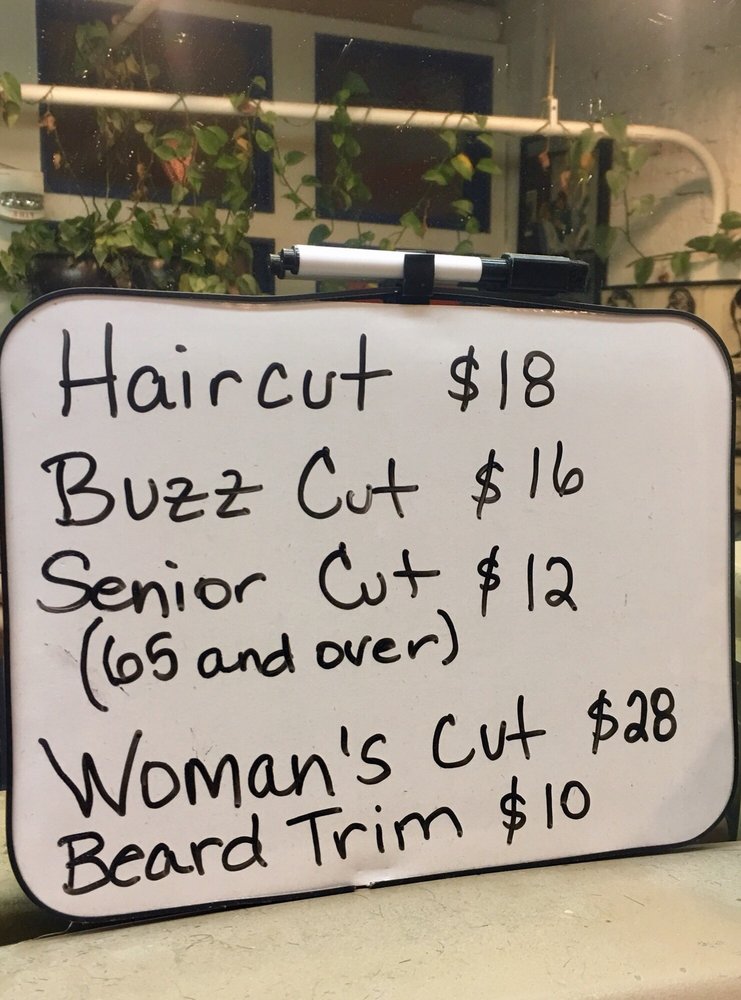 Haircut $18
Buzz Cut $16
Senior Cut $12
(65 and over)
Woman's Cut $28
Beard Trim $10